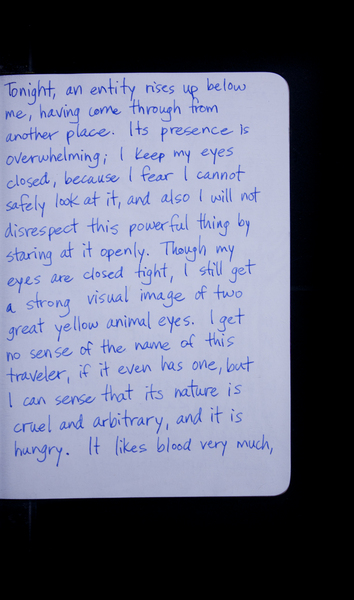 Tonight, an entity rises up below
me, having come through from
another place. Its presence is
overwhelming; I keep my eyes
closed, because I fear I cannot
safely look at it, and also I will not
disrespect this powerful thing by
staring at it openly. Though my
eyes are closed tight, I still get
a strong visual image of two
great yellow animal eyes. I get
no sense of the name of this
traveler, if it even has one, but
I can sense that its nature is
cruel and arbitrary, and it is
hungry. It likes blood very much,